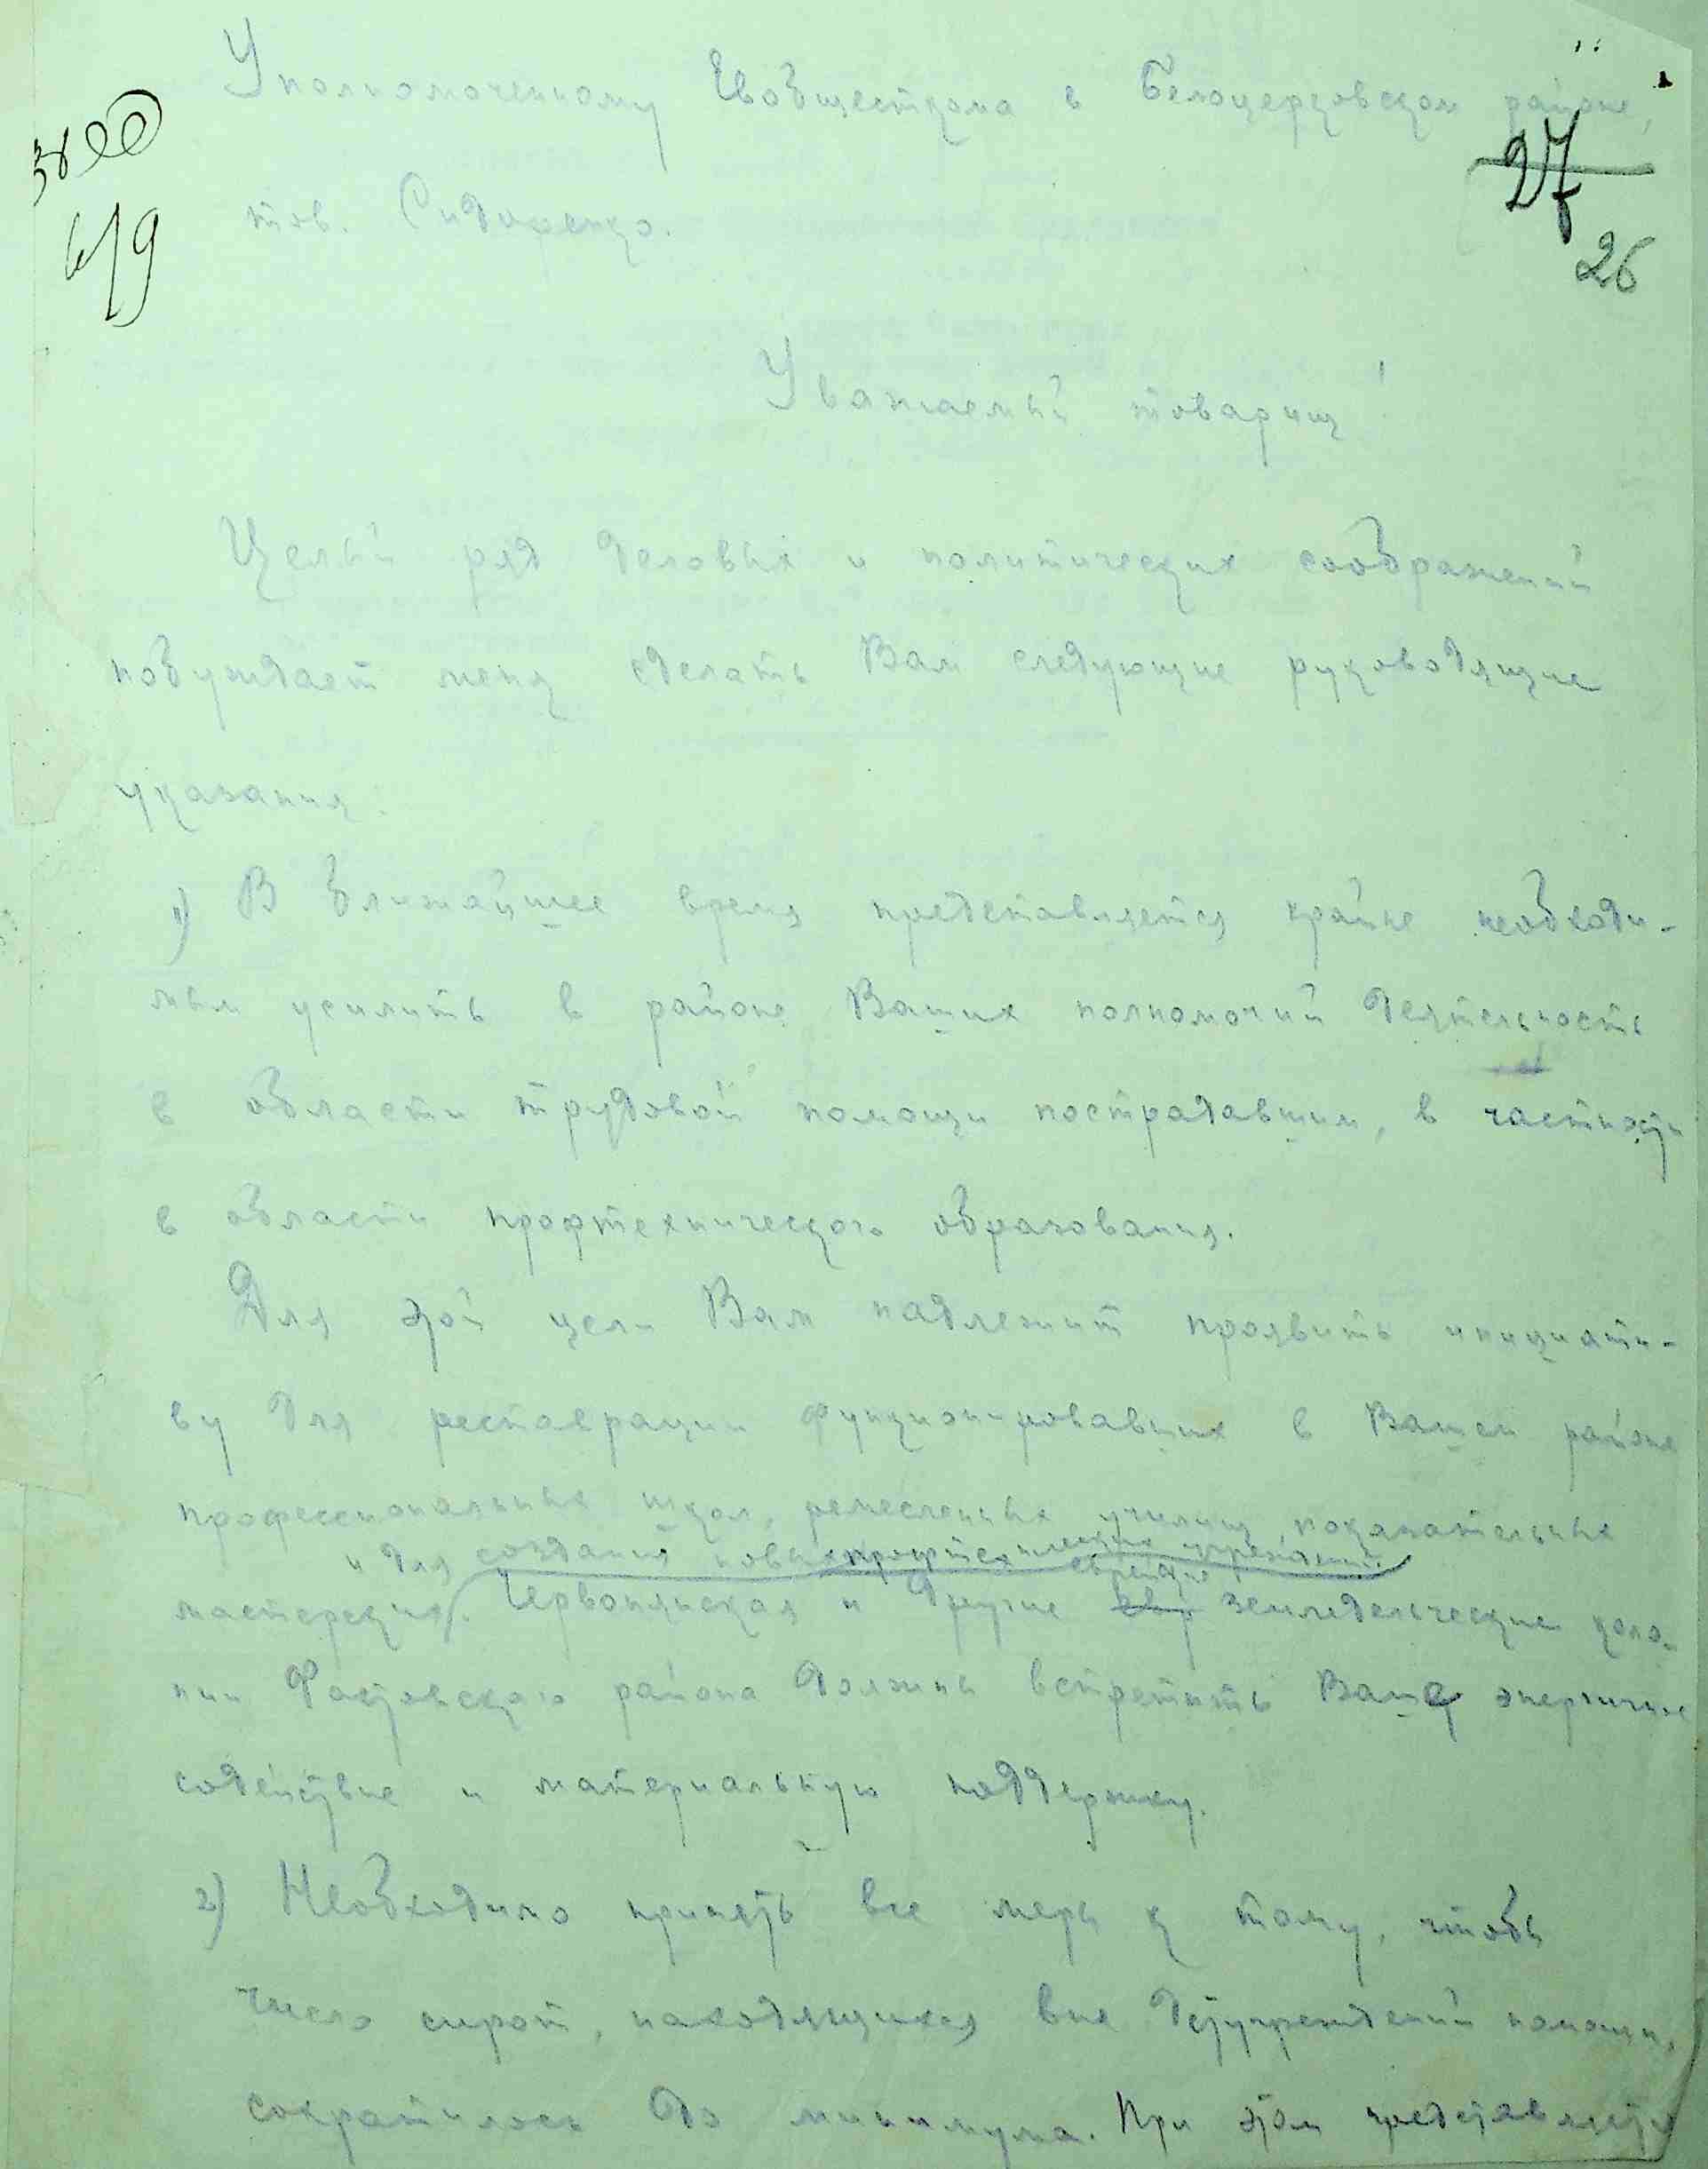 Уполномоченному Евобщесткома в Белоцерковском районе,
27
26
тов. Сидоренко.
Уважаемый товарищ!
Целый ряд деловых и политических соображений
побуждает меня сделать Вам следующие руководящие
указания:
1) В ближайшее время представляется крайне необходи-
мым усилить в районе Ваших полномочий деятельность
в области трудовой помощи пострадавшим, в частности
в области профтехнического образования.
Для этой цели Вам надлежит проявить инициати-
ву для реставрации функционировавших в Вашем районе
профессиональных школ, ремесленных училищ, показательных
и для создания новых профтехнических учреждений
еврейские
мастерских. Червонянская и другие евр земледельческие коло-
нии Фастовского района должны встретить Ваше энергичное
содействие и материальную поддержку.
2) Необходимо принять все меры к тому, чтобы
число сирот, находящихся вне детучреждений помощи,
сократилось до минимума. При этом представляется